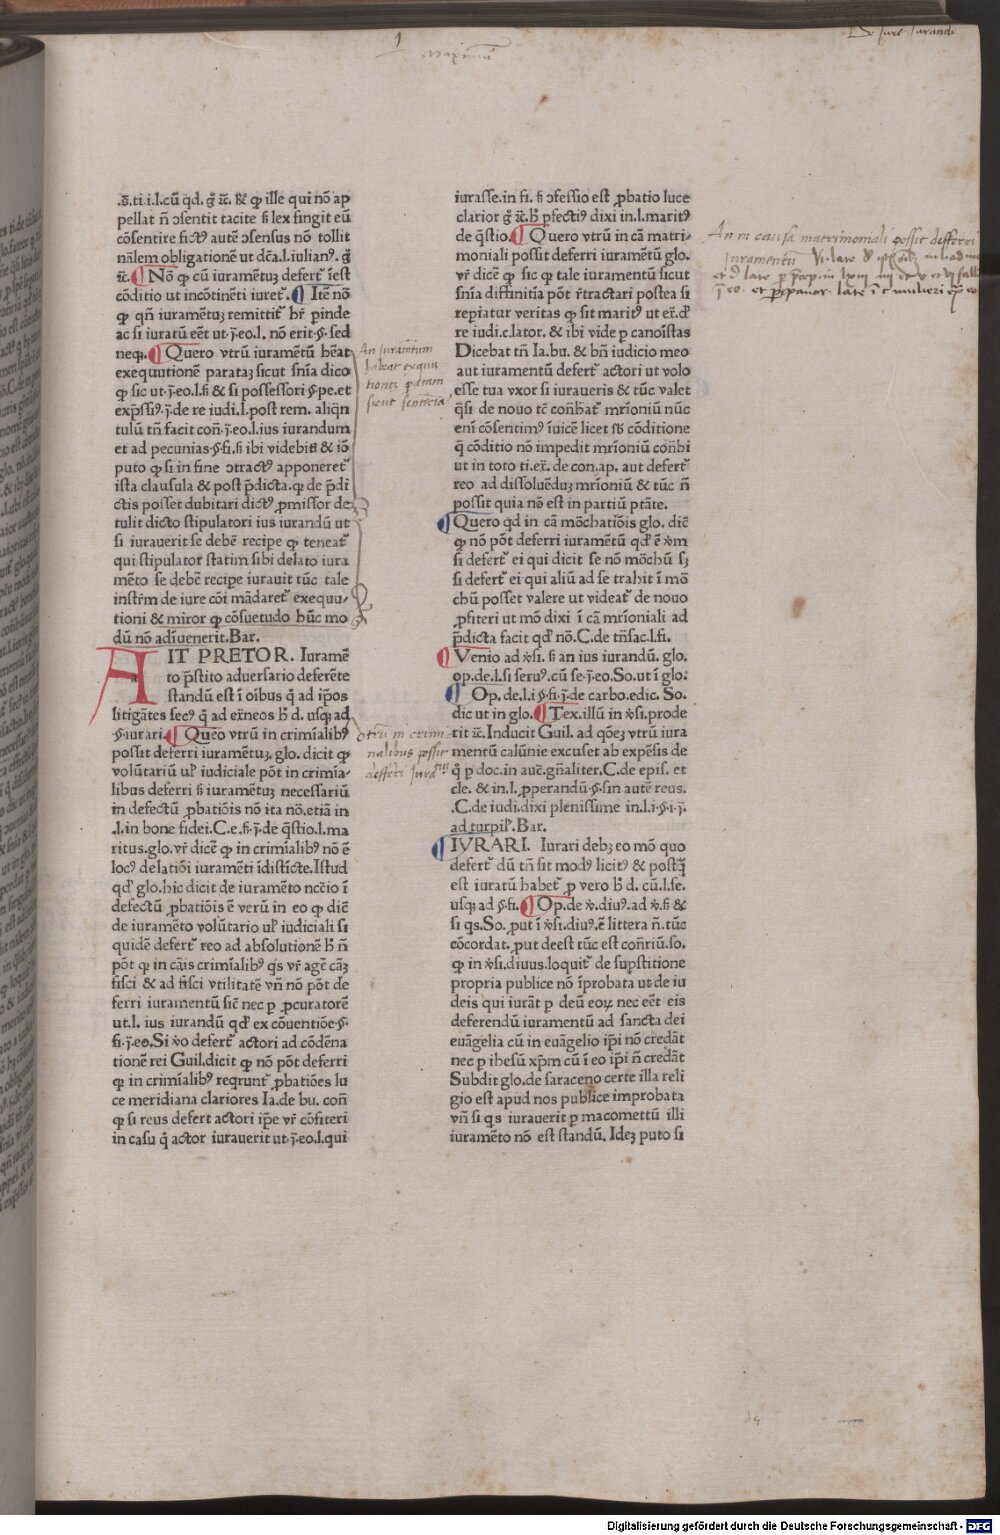 De Jure Jurandi
.ḡ.ti.i.l.cū qd. ḡ ic̄. qꝫ ille qui nō ap
pellat n̄ ↄsentit tacite ſꝫ lex fingit eū
cōsentire fictꝰ autē ↄsensus nō tollit
nālem obligationē ut dc̄a.l.iulianꝰ. ḡ
ic̄. ¶ Nō ꝙ cū iuramētuꝫ defert̄ īest
cōditio ut incōtinēti iuret̄. ¶ Itē nō
ꝙ qn̄ iuramētuꝫ remittit̄ hr̄ pinde
ac si iuratū eēt ut.j.eo.l. nō erit.§. sed
neqꝫ. ¶ Quero vtrū iuramētū hēat
exequutionē parataꝫ sicut sn̄ia dico
ꝙ sic ut.j.eo.l.fi & si possessori.§.pe.et
exp̄ssiꝰ.j.de re iudi.l.post rem. aliqn̄
tulū tn̄ facit con̄.j.eo.l.ius iurandum
et ad pecunias.§.fi.fi ibi videbiti & iō
puto ꝙ si in fine ↄtractꝰ apponeret̄
ista clausula & post p̄dicta.qꝫ de p̄di
ctis posset dubitari dictꝰ ꝓmissor de
tulit dicto stipulatori ius iurandū ut
si iurauerit se debē recipe ꝙ teneat̄
qui stipulator statim sibi delato iura
mēto se debē recipe iurauit tūc tale
instr̄m de iure cōi mādaret̄ exequu-
tioni & miror ꝙ cōsuetudo hūc mo
dū nō adīuenerit.Bar.
AIT PRETOR. Iuramē
to p̄stito aduersario deferēte
standū est ī oībus q̄ ad ip̄os
litigātes secꝰ q̄ ad ex̄neos h̄ d. usqꝫ ad
.§.iurari. ¶ Queō vtrū in crimialibꝰ
possit deferri iuramētuꝫ. glo. dicit ꝙ
volūtariū ul̄ iudiciale pōt in crimia-
libus deferri ſꝫ iuramētuꝫ necessariū
in defectū ꝓbatiōis nō ita nō.etiā in
.l.in bone fidei.C.e.fi.j.de q̄stio.l.ma
ritus.glo.vr̄ dicē ꝙ in crimialibꝰ nō ē
locꝰ delatiōi iuramēti īdisticte.Istud
qd̄ glo.hic dicit de iuramēto nc̄cio ī
defectū ꝓbatiōis ē verū in eo ꝙ diē
de iuramēto volūtario ul̄ iudiciali si
quidē defert̄ reo ad absolutionē h̄ n̄
pōt ꝙ in cāis crimialibꝰ qs vr̄ agē cāꝫ
fisci & ad fisci vtilitatē vn̄ nō pōt de
ferri iuramentū sic̄ nec p ꝓcuratorē
ut.l. ius iurandū qd̄ ex cōuentiōe.§.
fi.j.eo.Si v̄o defert̄ actori ad cōdēna
tionē rei Guil.dicit ꝙ nō pōt deferri
ꝙ in crimialibꝰ reqrunt̄ ꝓbatiōes lu
ce meridiana clariores Ia.de bu. con̄
ꝙ si reus defert actori ip̄e vr̄ cōfiteri
in casu q̄ actor iurauerit ut.j.eo.l.qui
An Iuramentum
habeat exequu
tionez paratam
sicut sententia
vtrum in crimi
nalibus possit
defferri Jura
iurasse.in fi. ſꝫ ↄfessio est ꝓbatio luce
clarior ḡ ic̄.h̄ pfectiꝰ dixi in.l.maritꝰ
de q̄stio. ¶ Quero vtrū in cā matri-
moniali possit deferri iuramētū glo.
vr̄ dicē ꝙ sic ꝙ tale iuramentū sicut
sn̄ia diffinitia pōt rr̄tractari postea si
repiatur veritas ꝙ sit maritꝰ ut ex̄.d̄
re iudi.c.lator. & ibi vide p canoīstas
Dicebat tn̄ Ia.bu. & bn̄ iudicio meo
aut iuramentū defert̄ actori ut volo
esse tua vxor si iuraueris & tūc valet
q̄si de nouo tc̄ con̄hat̄ mr̄ioniū nūc
eni cōsentimꝰ īuicē licet sb̄ cōditione
q̄ cōditio nō impedit mr̄ioniū con̄hi
ut in toto ti.ex̄. de con.ap. aut defert̄
reo ad dissoluēduꝫ mr̄ioniū & tūc n̄
possit quia nō est in partiū ptāte.
¶ Quero qd in cā mōchatiōis glo. diē
ꝙ nō pōt deferri iuramētū qd̄ ē v̄m
si defert̄ ei qui dicit se nō mōchū sꝫ
si defert̄ ei qui aliū ad se trahit ī mō
chū posset valere ut videat̄ de nouo
ꝓfiteri ut mō dixi ī cā mr̄ioniali ad
p̄dicta facit qd̄ nō.C.de tn̄sac.l.fi.
¶ Venio ad v̄si. ſꝫ an ius iurandū. glo.
op.de.l.si seruꝰ.cū se.j.eo.So.ut ī glo:
¶ Op.de.l.i §.fi.j.de carbo.edic. So.
dic ut in glo. ¶ Tex.illū in v̄si.prode
rit ic̄.Inducit Guil. ad qōeꝫ vtrū iura
mentū calūnie excuset ab expēsis de
q̄ p doc.in auc̄.gn̄aliter.C.de epis. et
cle. & in.l. ꝓperandū.§.sin autē reus.
.C.de iudi.dixi plenissime in.l.i.§.i.j.
ad turpil̄.Bar.
¶ IVRARI. Iurari debꝫ eo mō quo
defert̄ dū tn̄ sit modꝰ licitꝰ & postq̄
est iuratū habet̄ p vero h̄ d. cū.l.se.
usqꝫ ad §.fi. ¶ Op.de v̄.diuꝰ.ad v̄.ſꝫ &
si qs.So. put ī v̄si.diuꝰ.ē littera n̄.tūc
cōcordat. put deest tūc est con̄riū.so.
ꝙ in v̄si.diuus.loquit̄ de supstitione
propria publice nō īprobata ut de iu
deis qui iurāt p deū eoꝝ nec eēt eis
deferendū iuramentū ad sancta dei
euāgelia cū in euāgelio ip̄i nō credāt
nec p ihesū xp̄m cū ī eo ip̄i n̄ credāt
Subdit glo.de saraceno certe illa reli
gio est apud nos publice improbata
vn̄ si qs iurauerit p macomettū illi
iuramēto nō est standū. Ideꝫ puto si
An in causa matrimoniali possit defferri
Juramentū
Digitalisierung gefördert durch die Deutsche Forschungsgemeinschaft - DFG